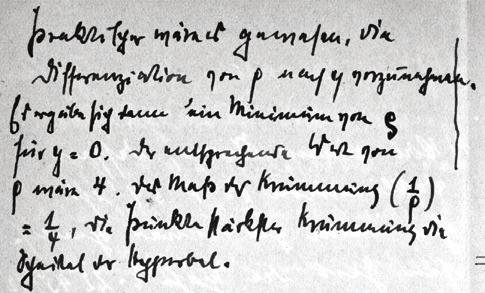 Praktischer wäre es gewesen, die
Differenziation von ρ nach y vorzunehmen.
Es ergäbe sich dann ein Minimum von ρ
für y = 0. Der entsprechende Wert von
ρ wäre 4. Das Maß der Krümmung (1/ρ)
= 1/4, die Punkte stärkster Krümmung die
Scheitel der Hyperbel.